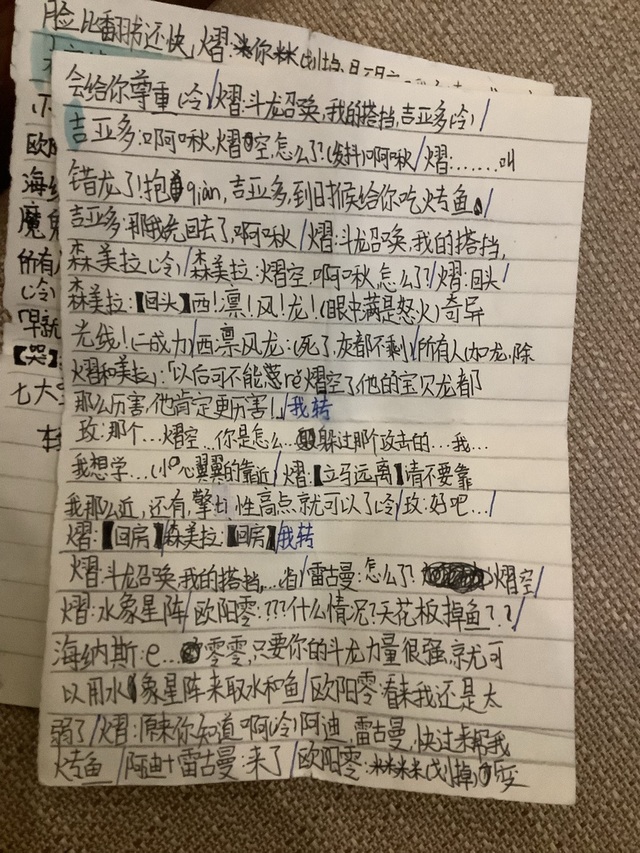 脸比翻书还快,熠:
会给你尊重(冷)/熠:斗龙召唤,我的搭挡,吉亚多(冷)/
吉亚多:啊啾,熠空,怎么了?(发抖)啊啾/熠:……叫
错龙了!抱qiàn,吉亚多,到时候给你吃烤鱼。/
吉亚多:那我先回去了,啊啾/熠:斗龙召唤,我的搭挡,
森美拉(冷)/森美拉:熠空,啊啾,怎么了?/熠:回头/
森美拉:【回头】西!凛!风!龙!(眼中满是怒火)奇异
光线!(一成力)/西凛风龙:(死了,灰都不剩)/所有人(加龙,除
熠和美拉):「以后可不能惹熠空了他的宝贝龙都
那么厉害,他肯定更厉害!」/我转
玫:那个…熠空…你是怎么…躲过那个攻击的…我…
我想学…(小心翼翼的靠近)/熠:【立马远离】请不要靠
我那么近,还有,擎力性高点就可以了(冷)/玫:好吧…/
熠:【回房】/森美拉:【回房】/我转
熠:斗龙召唤,我的搭挡,…省/雷古曼:怎么了?熠空/
熠:水象星阵/欧阳零:???什么情况?天花板掉鱼??/
海纳斯:e…零零,只要你的斗龙力量很强,就可
以用水象星阵来取水和鱼/欧阳零:看来我还是太
弱了/熠:原来你知道啊(冷)阿迪,雷古曼,快过来帮我
烤鱼/阿迪+雷古曼:来了/欧阳零:(划掉)
欧
海纳
魔
所有
(冷)
「早就
【哭】
七大